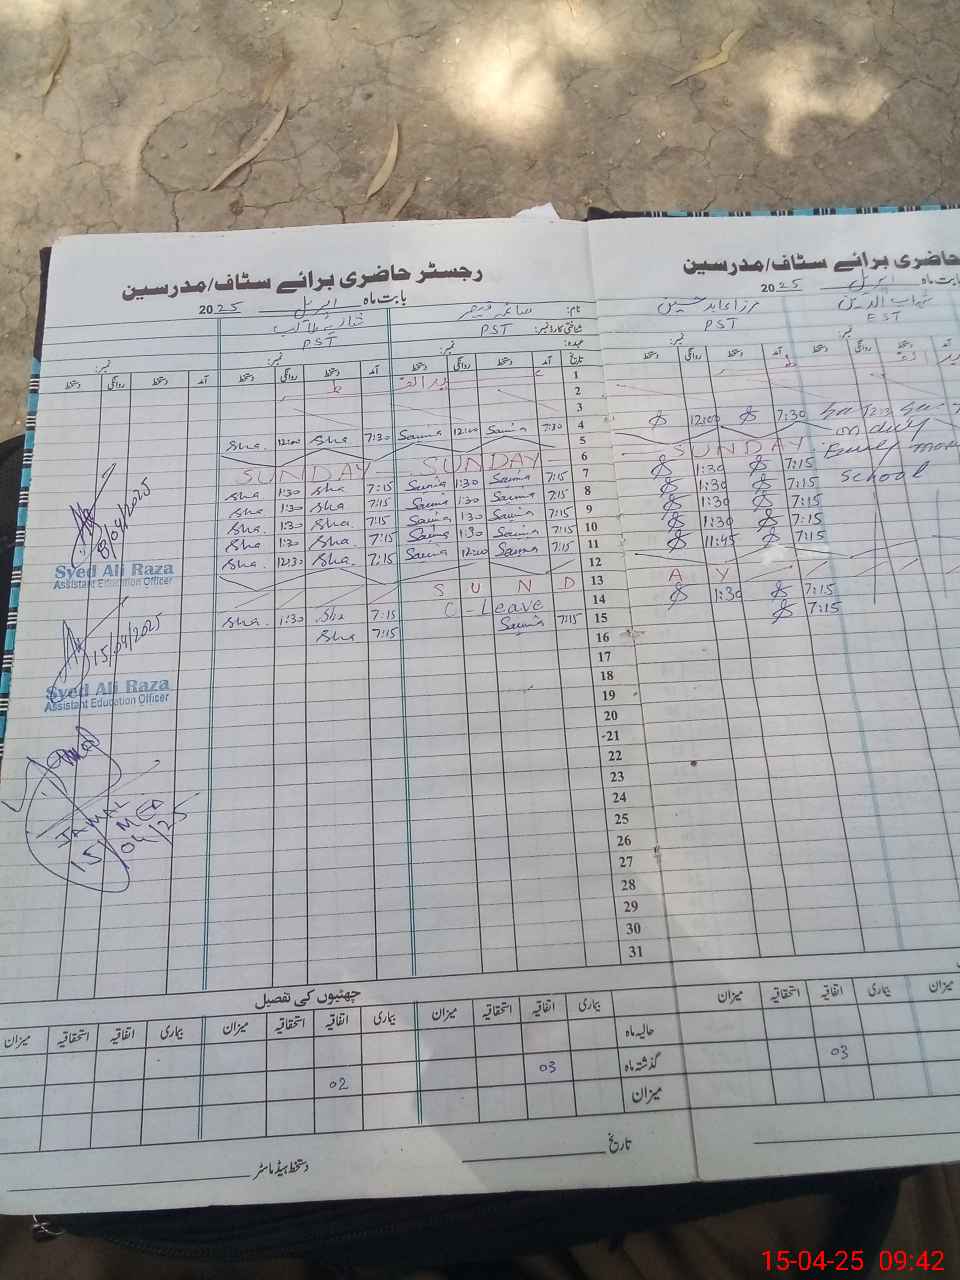 رجسٹر حاضری برائے سٹاف/مدرسین
حاضری برائے سٹاف/مدرسین
بابت ماہ اپریل 2025
بابت ماہ اپریل 2025
نام:
شناختی کارڈ نمبر: PST
PST
PST
EST
عہدہ:
نمبر: نمبر: نمبر: نمبر:
تاریخ آمد دستخط روانگی دستخط آمد دستخط روانگی دستخط آمد دستخط روانگی دستخط
1
2
3
4 7:30 Saima 12:00 Saima 7:30 Sha 12:00 Sha.
7:30 12:00
on duty
5
6 SUNDAY SUNDAY
SUNDAY
7 7:15 Saima 1:30 Saima 7:15 Sha 1:30 Sha
7:15 1:30
School
8 7:15 Saima 1:30 Saima 7:15 Sha 1:30 Sha
7:15 1:30
9 7:15 Saima 1:30 Saima 7:15 Sha. 1:30 Sha.
7:15 1:30
10 7:15 Saima 1:30 Saima 7:15 Sha. 1:30 Sha
7:15 1:30
11 7:15 Saima 12:00 Saima 7:15 Sha. 12:30 Sha.
7:15 11:45
12
13 S U N D A Y
14 C-Leave 7:15 Sha 1:30 Sha.
7:15 1:30
15 7:15 Saima 7:15 Sha
7:15
16
17
18
19
20
21
22
23
24
25
26
27
28
29
30
31
8/04/2025
Syed Ali Raza
Assistant Education Officer
15/04/2025
Syed Ali Raza
Assistant Education Officer
JAMAL
MEA
15/04/25
چھٹیوں کی تفصیل
بیماری اتفاقیہ استحقاقیہ میزان بیماری اتفاقیہ استحقاقیہ میزان بیماری اتفاقیہ استحقاقیہ میزان
میزان بیماری اتفاقیہ استحقاقیہ میزان
حالیہ ماہ
گذشتہ ماہ 03 02
03
میزان
تاریخ
دستخط ہیڈ ماسٹر
15-04-25 09:42